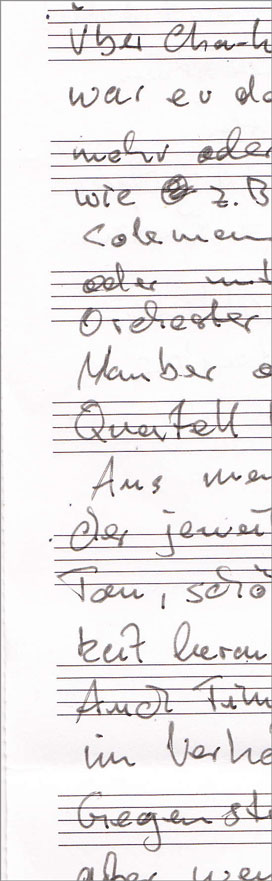 Über Cha
war er da
mehr oder
wie z.B
Coleman
oder mit
Orchester
Mauber
Quartett
Aus me
der jewei
Ton, schö
keit heran
Auch Fil
im Verhä
Gegenst
aber wen